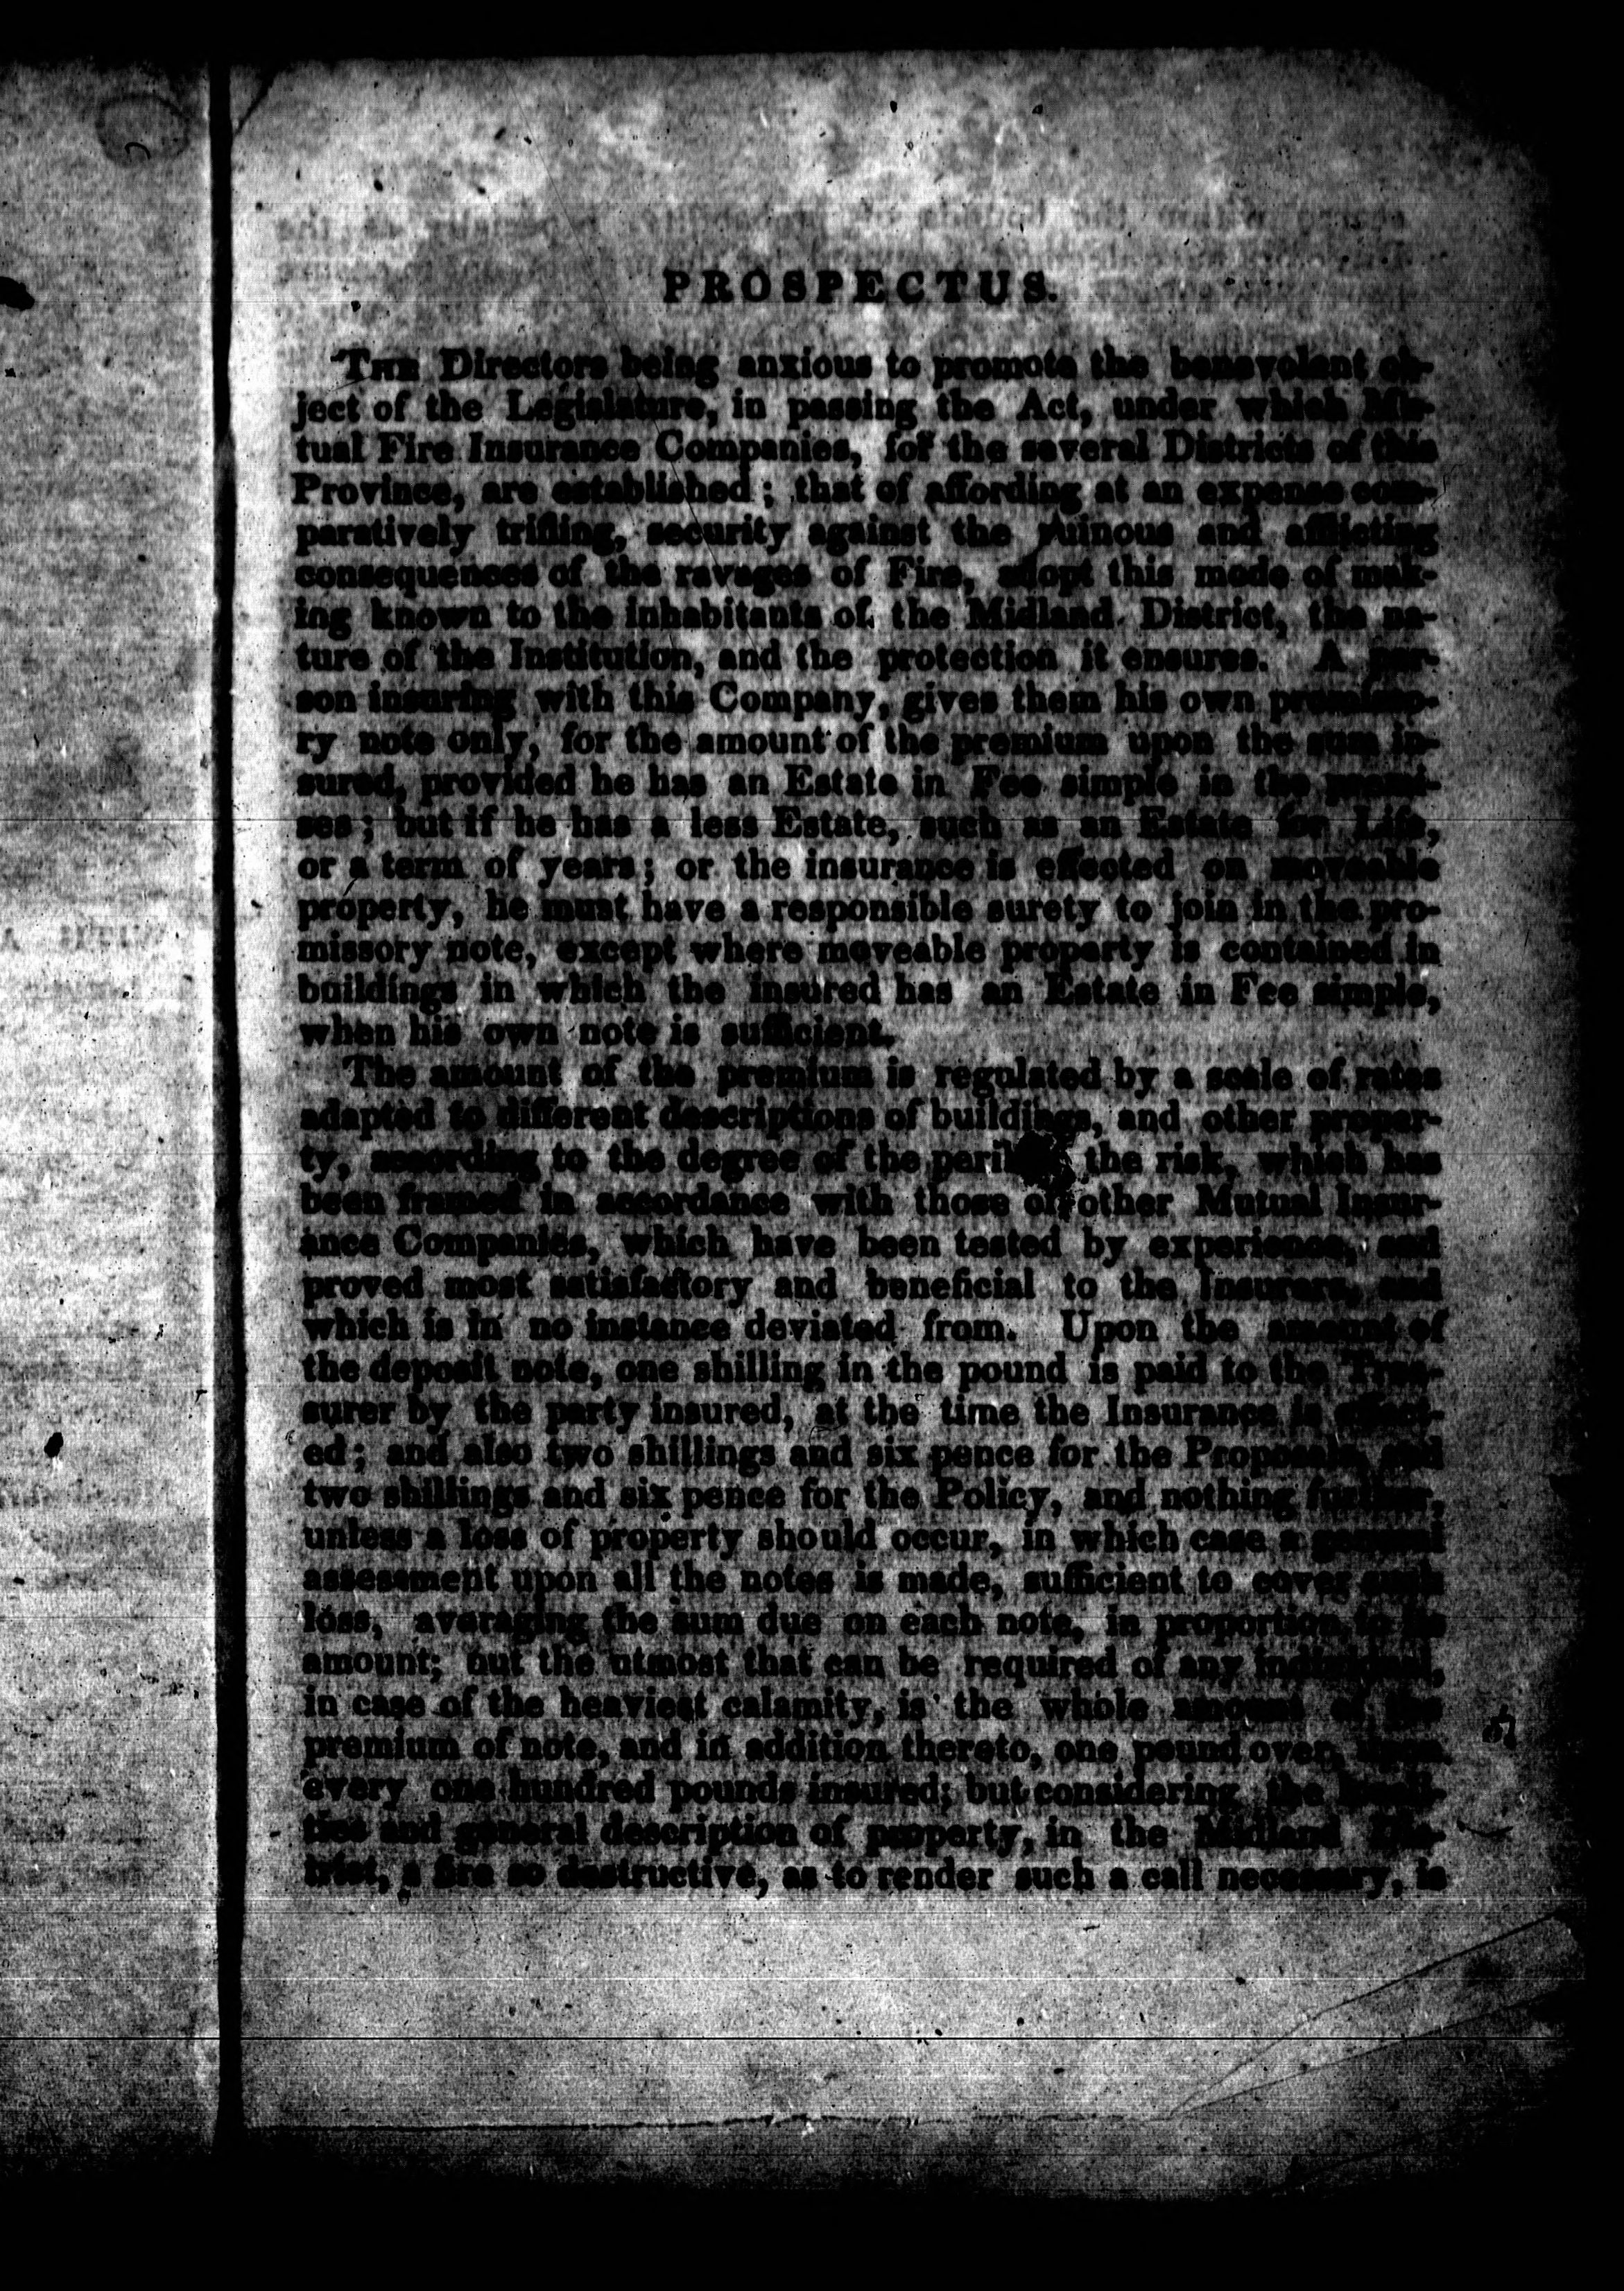 PROSPECTUS.
THE Directors being anxious to promote the benevolent ob-
ject of the Legislature, in passing the Act, under which Mu-
tual Fire Insurance Companies, for the several Districts of this
Province, are established; that of affording at an expense com-
paratively trifling, security against the ruinous and afflicting
consequences of the ravages of Fire, adopt this mode of mak-
ing known to the inhabitants of the Midland District, the na-
ture of the Institution, and the protection it ensures. A per-
son insuring with this Company, gives them his own promisso-
ry note only, for the amount of the premium upon the sum in-
sured, provided he has an Estate in Fee simple in the premi-
ses; but if he has a less Estate, such as an Estate for Life,
or a term of years; or the insurance is effected on moveable
property, he must have a responsible surety to join in the pro-
missory note, except where moveable property is contained in
buildings in which the insured has an Estate in Fee simple,
when his own note is sufficient.
The amount of the premium is regulated by a scale of rates
adapted to different descriptions of buildings, and other proper-
ty, according to the degree of the peril the risk, which has
been framed in accordance with those of other Mutual Insur-
ance Companies, which have been tested by experience, and
proved most satisfactory and beneficial to the Insurers, and
which is in no instance deviated from. Upon the amount of
the deposit note, one shilling in the pound is paid to the Trea-
surer by the party insured, at the time the Insurance is effect-
ed; and also two shillings and six pence for the Proposals, and
two shillings and six pence for the Policy, and nothing further,
unless a loss of property should occur, in which case a general
assessment upon all the notes is made, sufficient to cover such
loss, averaging the sum due on each note, in proportion to its
amount; but the utmost that can be required of any individual,
in case of the heaviest calamity, is the whole amount of the
premium of note, and in addition thereto, one pound over, upon
every one hundred pounds insured; but considering the locali-
ties and general description of property, in the Midland Dis-
trict, a fire so destructive, as to render such a call necessary, is